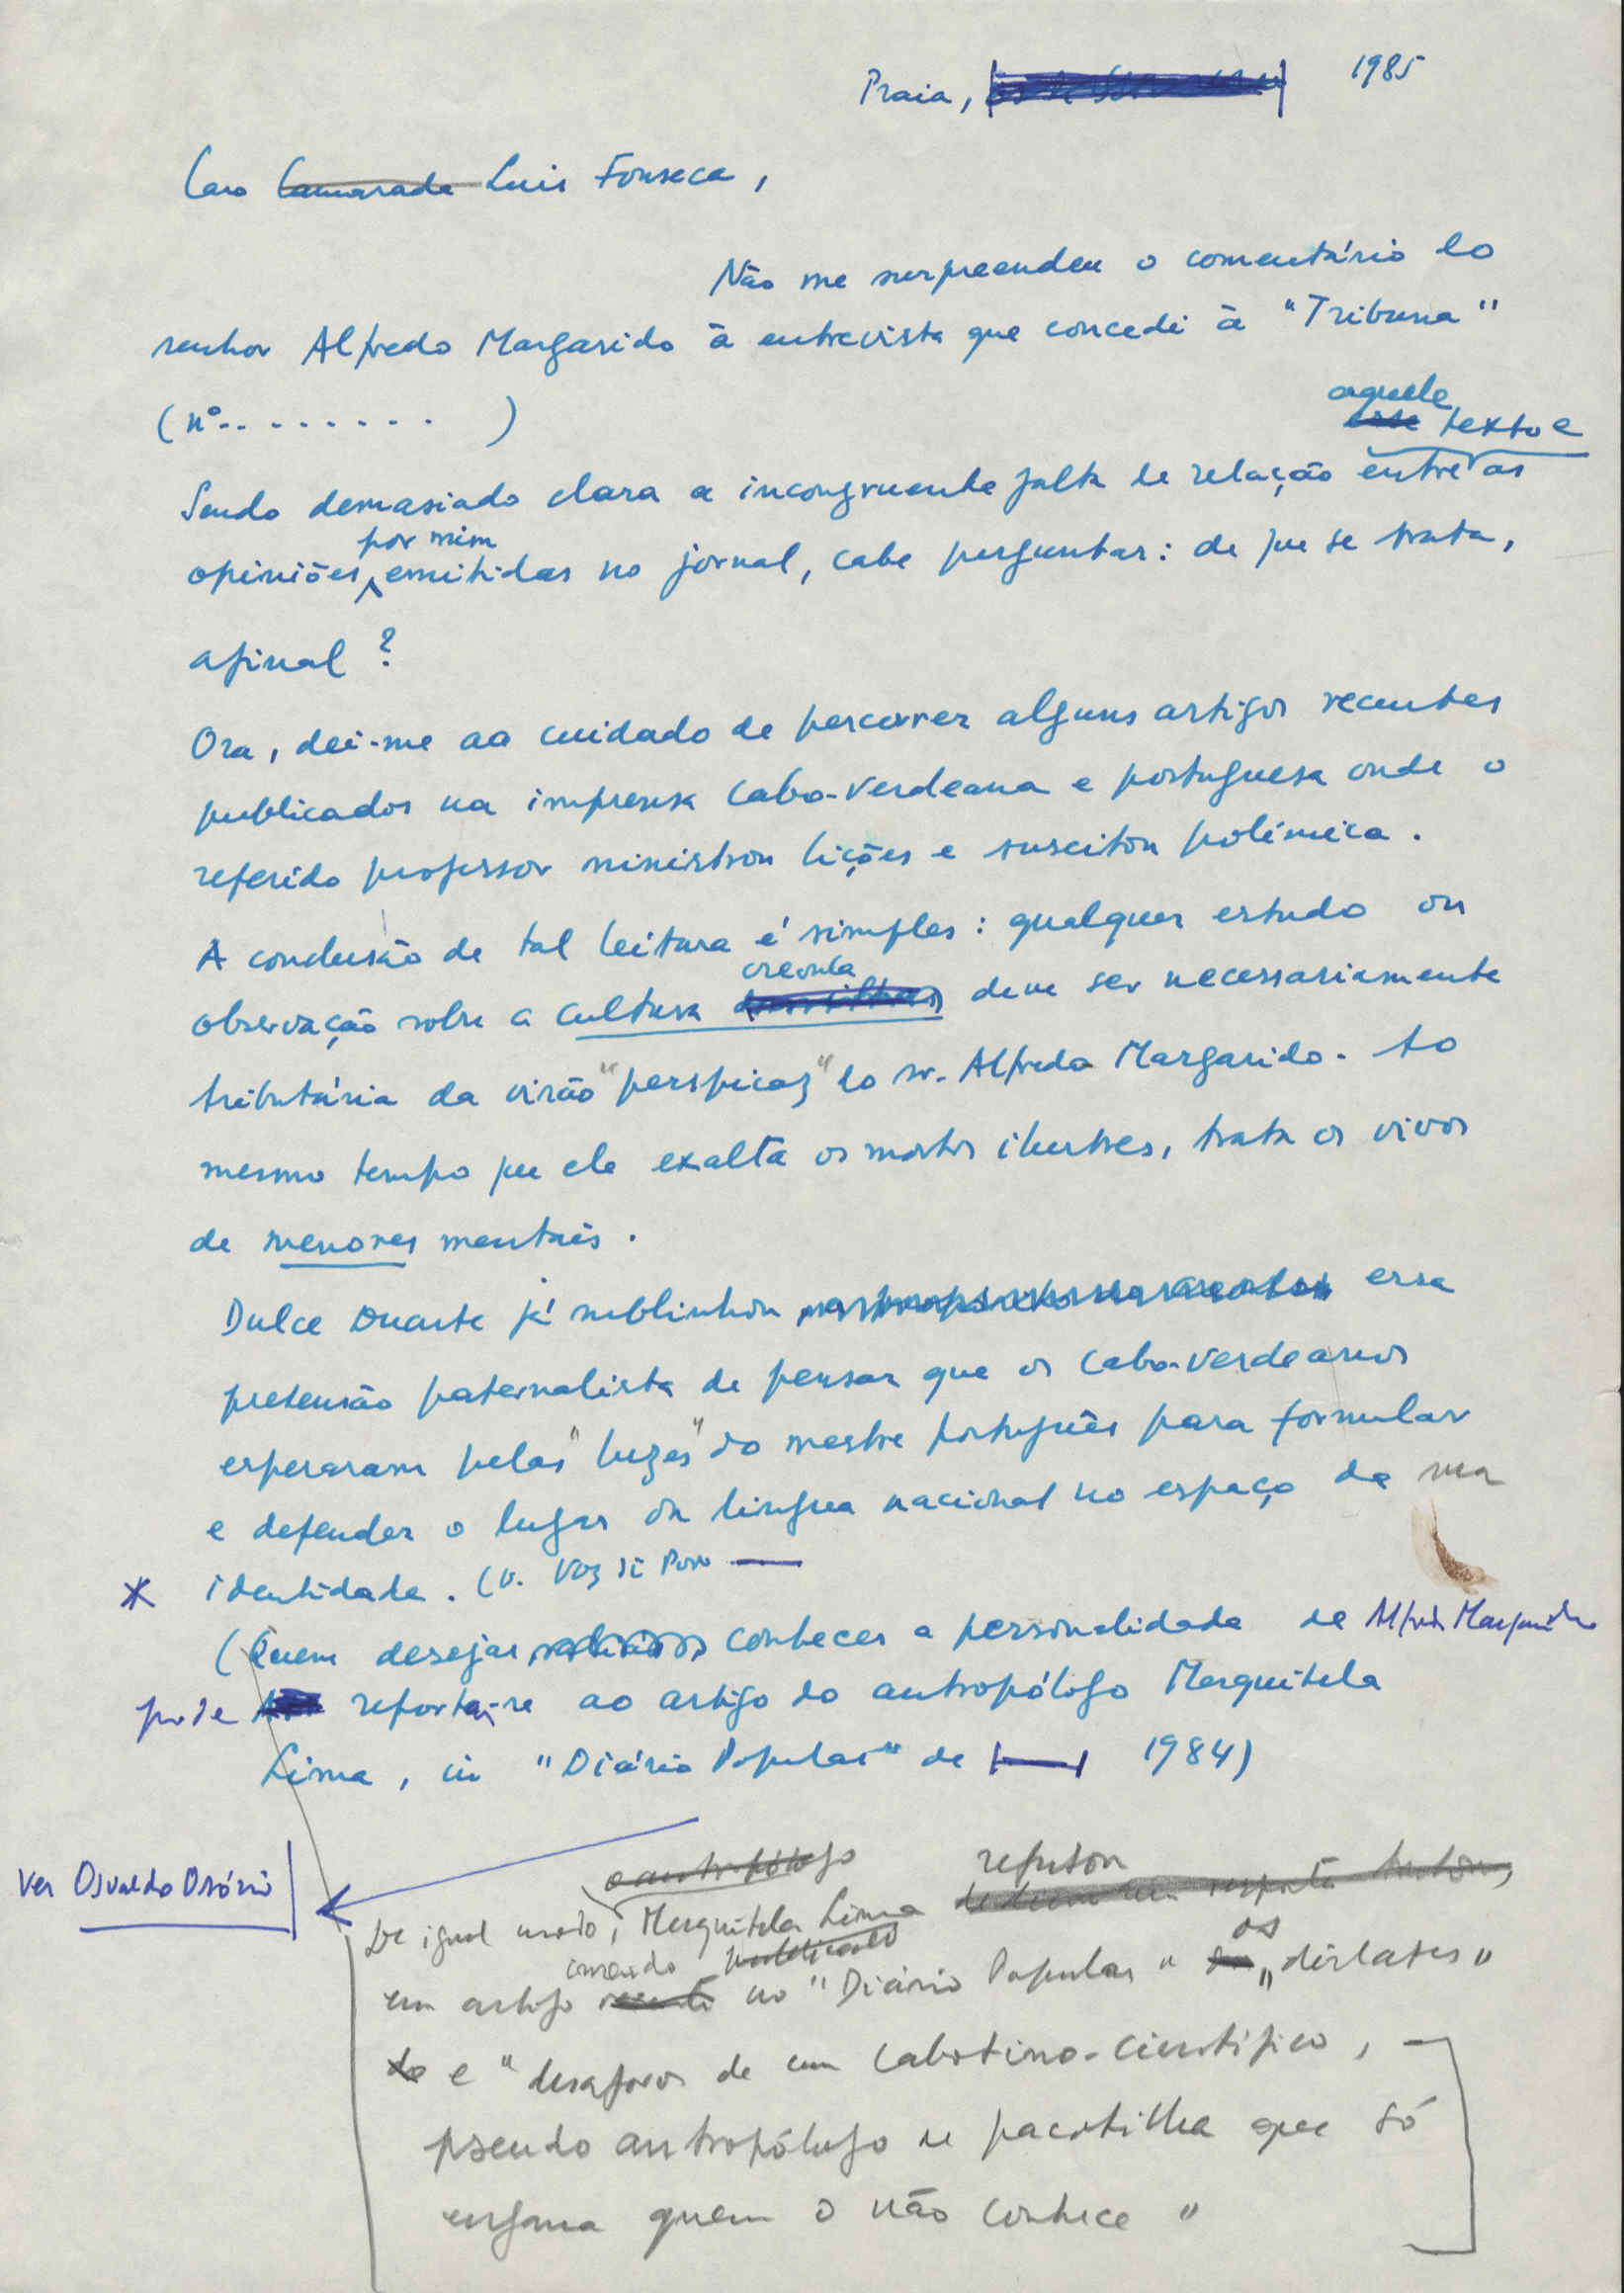 Praia, 1985
Caro Camarada Luis Fonseca,
Não me surpreendeu o comentário do
senhor Alfredo Margarido à entrevista que concedi à "Tribuna"
(nº........)
aquele
esse texto e
Sendo demasiado clara a incongruente falta de relação entre as
por mim
opiniões emitidas no jornal, cabe perguntar: de que se trata,
afinal?
Ora, dei-me ao cuidado de percorrer alguns artigos recentes
publicados na imprensa cabo-verdeana e portuguesa onde o
referido professor ministrou lições e suscitou polémica.
A conclusão de tal leitura é simples: qualquer estudo ou
crioula
observação sobre a cultura deve ser necessariamente
tributária da visão "perspicaz" do sr. Alfredo Margarido. Ao
mesmo tempo que ele exalta os mortos ilustres, trata os vivos
de menores mentais.
Dulce Duarte já sublinhou essa
pretensão paternalista de pensar que os cabo-verdeanos
esperaram pelas "luzes" do mestre português para formular
e defender o lugar da língua nacional no espaço da sua
* identidade. (v. Voz di Povo —
(Quem desejar conhecer a personalidade de Alfredo Margarido
pode reportar-se ao artigo do antropólogo Mesquitela
Lima, in "Diário Popular" de 1984)
Ver Osvaldo Osório
o antropólogo refutou
De igual modo, Mesquitela Lima
publicado os
em artigo no "Diário Popular" "dislates"
do e "desaforos de um cabotino-científico,
pseudo antropólogo de pacotilha que só
engana quem o não conhece"